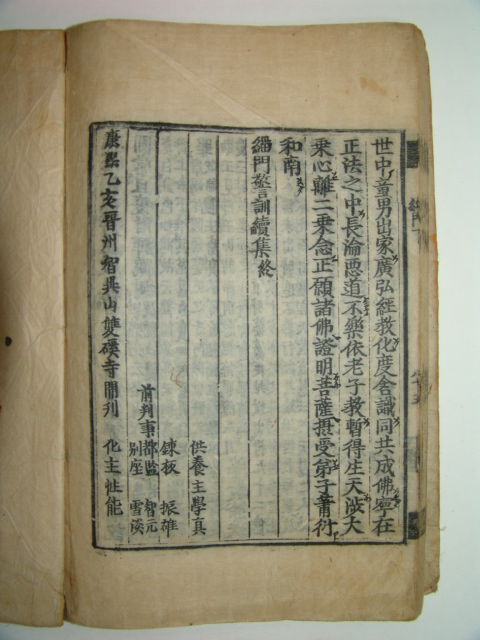 世中童男出家廣弘經教化度含識同共成佛寧在
正法之中長淪惡道不樂依老子教暫得生天涉大
乘心離二乘念正願諸佛證明菩薩攝受弟子蕭衍
和南
緇門警訓續集終
供養主學真
鍊板 振雄
前判事都監 智元
別座 雪瑛
康熙乙亥晋州智異山雙磎寺開刊 化主性能